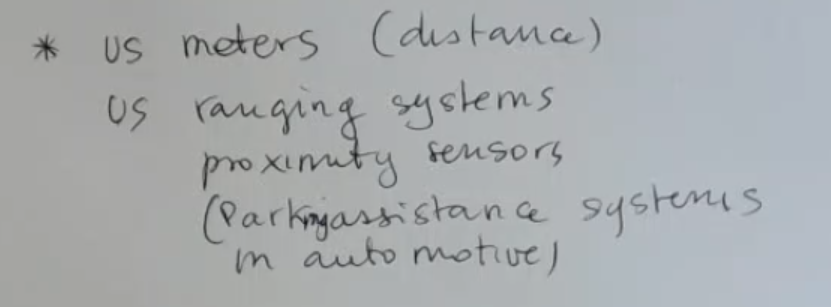 * US meters (distance)
US ranging systems
proximity sensors
(Parking assistance systems
in automotive)